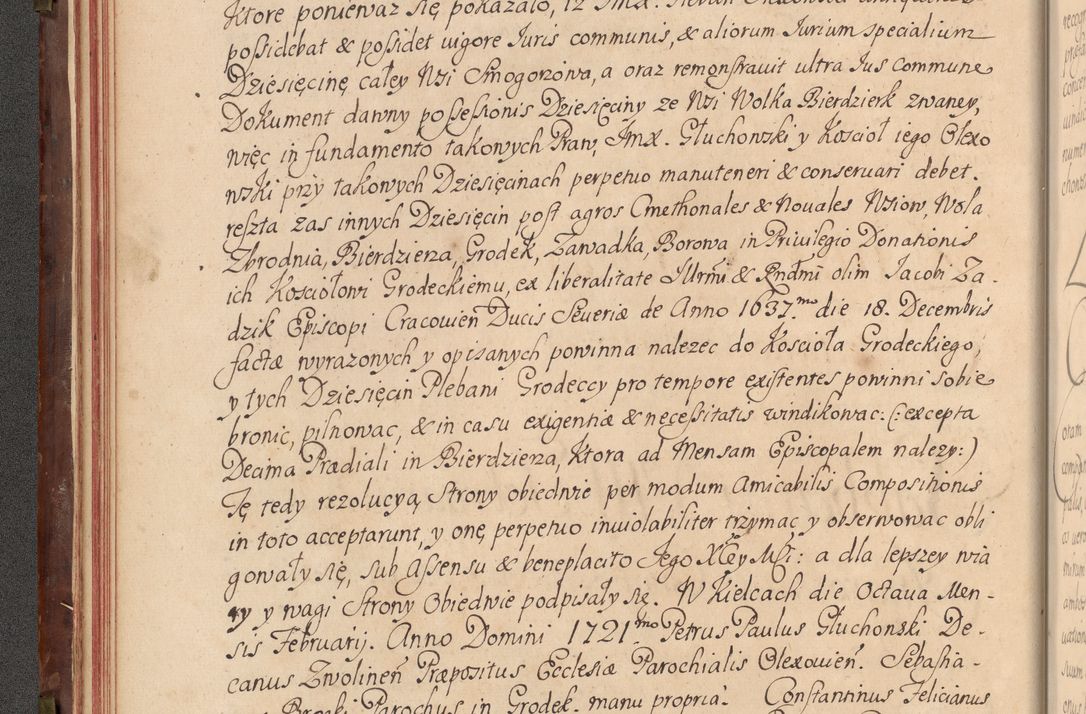 Ktore poniewaz się pokazało, iz Jmx.
possidebat & possidet uigore Iuris communis, & aliorum Iurium specialium
Dziesięcinę całey Wsi Smogorzowa, a oraz remonstrauit ultra Ius commune
Dokument dawny possessionis Dziesięciny ze Wsi Wolka Bierdzierk zwaney,
więc in fundamento takowych Praw, Jmx. Głuchowski y Kosciol iego Olexo
wski przy takowych Dziesięcinach perpetuo manuteneri & conseruari debet.
reszta zas innych Dziesięcin post agros Cmethonales & Nouales Wsiow, Wola
Zbrodnia, Bierdzieza, Grodek, Zawadka, Borowa in Priuilegio Donationis
ich Kosciołowi Grodeckiemu, ex liberalitate Illrmi & Rndmi olim Iacobi Za-
dzik Episcopi Cracouien Ducis Seueriæ de Anno 1637.mo die 18. Decembris
factæ wyrazonych y opisanych powinna nalezec do Kosciola Grodeckiego,
y tych Dziesięcin Plebani Grodeccy pro tempore existentes powinni sobie
bronic, pilnowac, & in casu exigentiæ & necessitatis windikowac: (: excepta
Decima Prædiali in Bierdzieza, Ktora ad Mensam Episcopalem nalezy:)
Tę tedy rezolucyą Strony obiedwie per modum Amicabilis Compositionis
in toto acceptarunt, y onę perpetuo inuiolabiliter trzymac y obserwowac obli
gowały się, sub Assensu & beneplacito Jego XCey Msci: a dla lepszey wia
ry y wagi Strony Obiedwie podpisały się. W Kielcach die Octaua Men-
sis Februarij. Anno Domini 1721.mo Petrus Paulus Głuchowski De-
canus Zwolinen Præpositus Ecclesiæ Parochialis Olexouien. Sebastia-
Parochus in Grodek. manu propria. Constantinus Felicianus